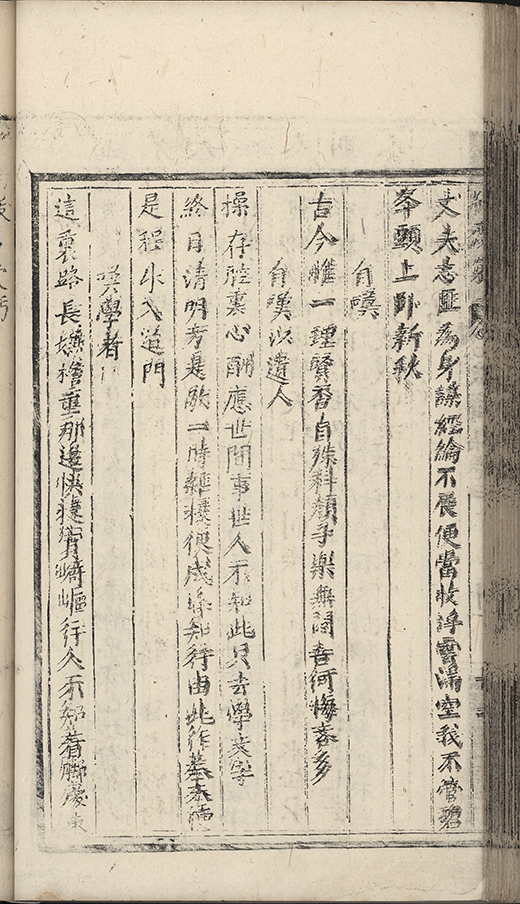 丈夫志匪為身謀經綸不展便當收浮雲滿空我不管碧
峯頭上卧新秋
自嘆
古今惟一理賢否自殊科顏子樂無悶吾何悔吝多
自嘆以遺人
操存腔裏心酬應世間事世人不知此只去學文字
終日清明者是敬一時雜擾便成昏知行由此作基本
是程朱入道門
嘆學者
這裏路長擔重那邊快捷實崎嶇行人不知着脚處